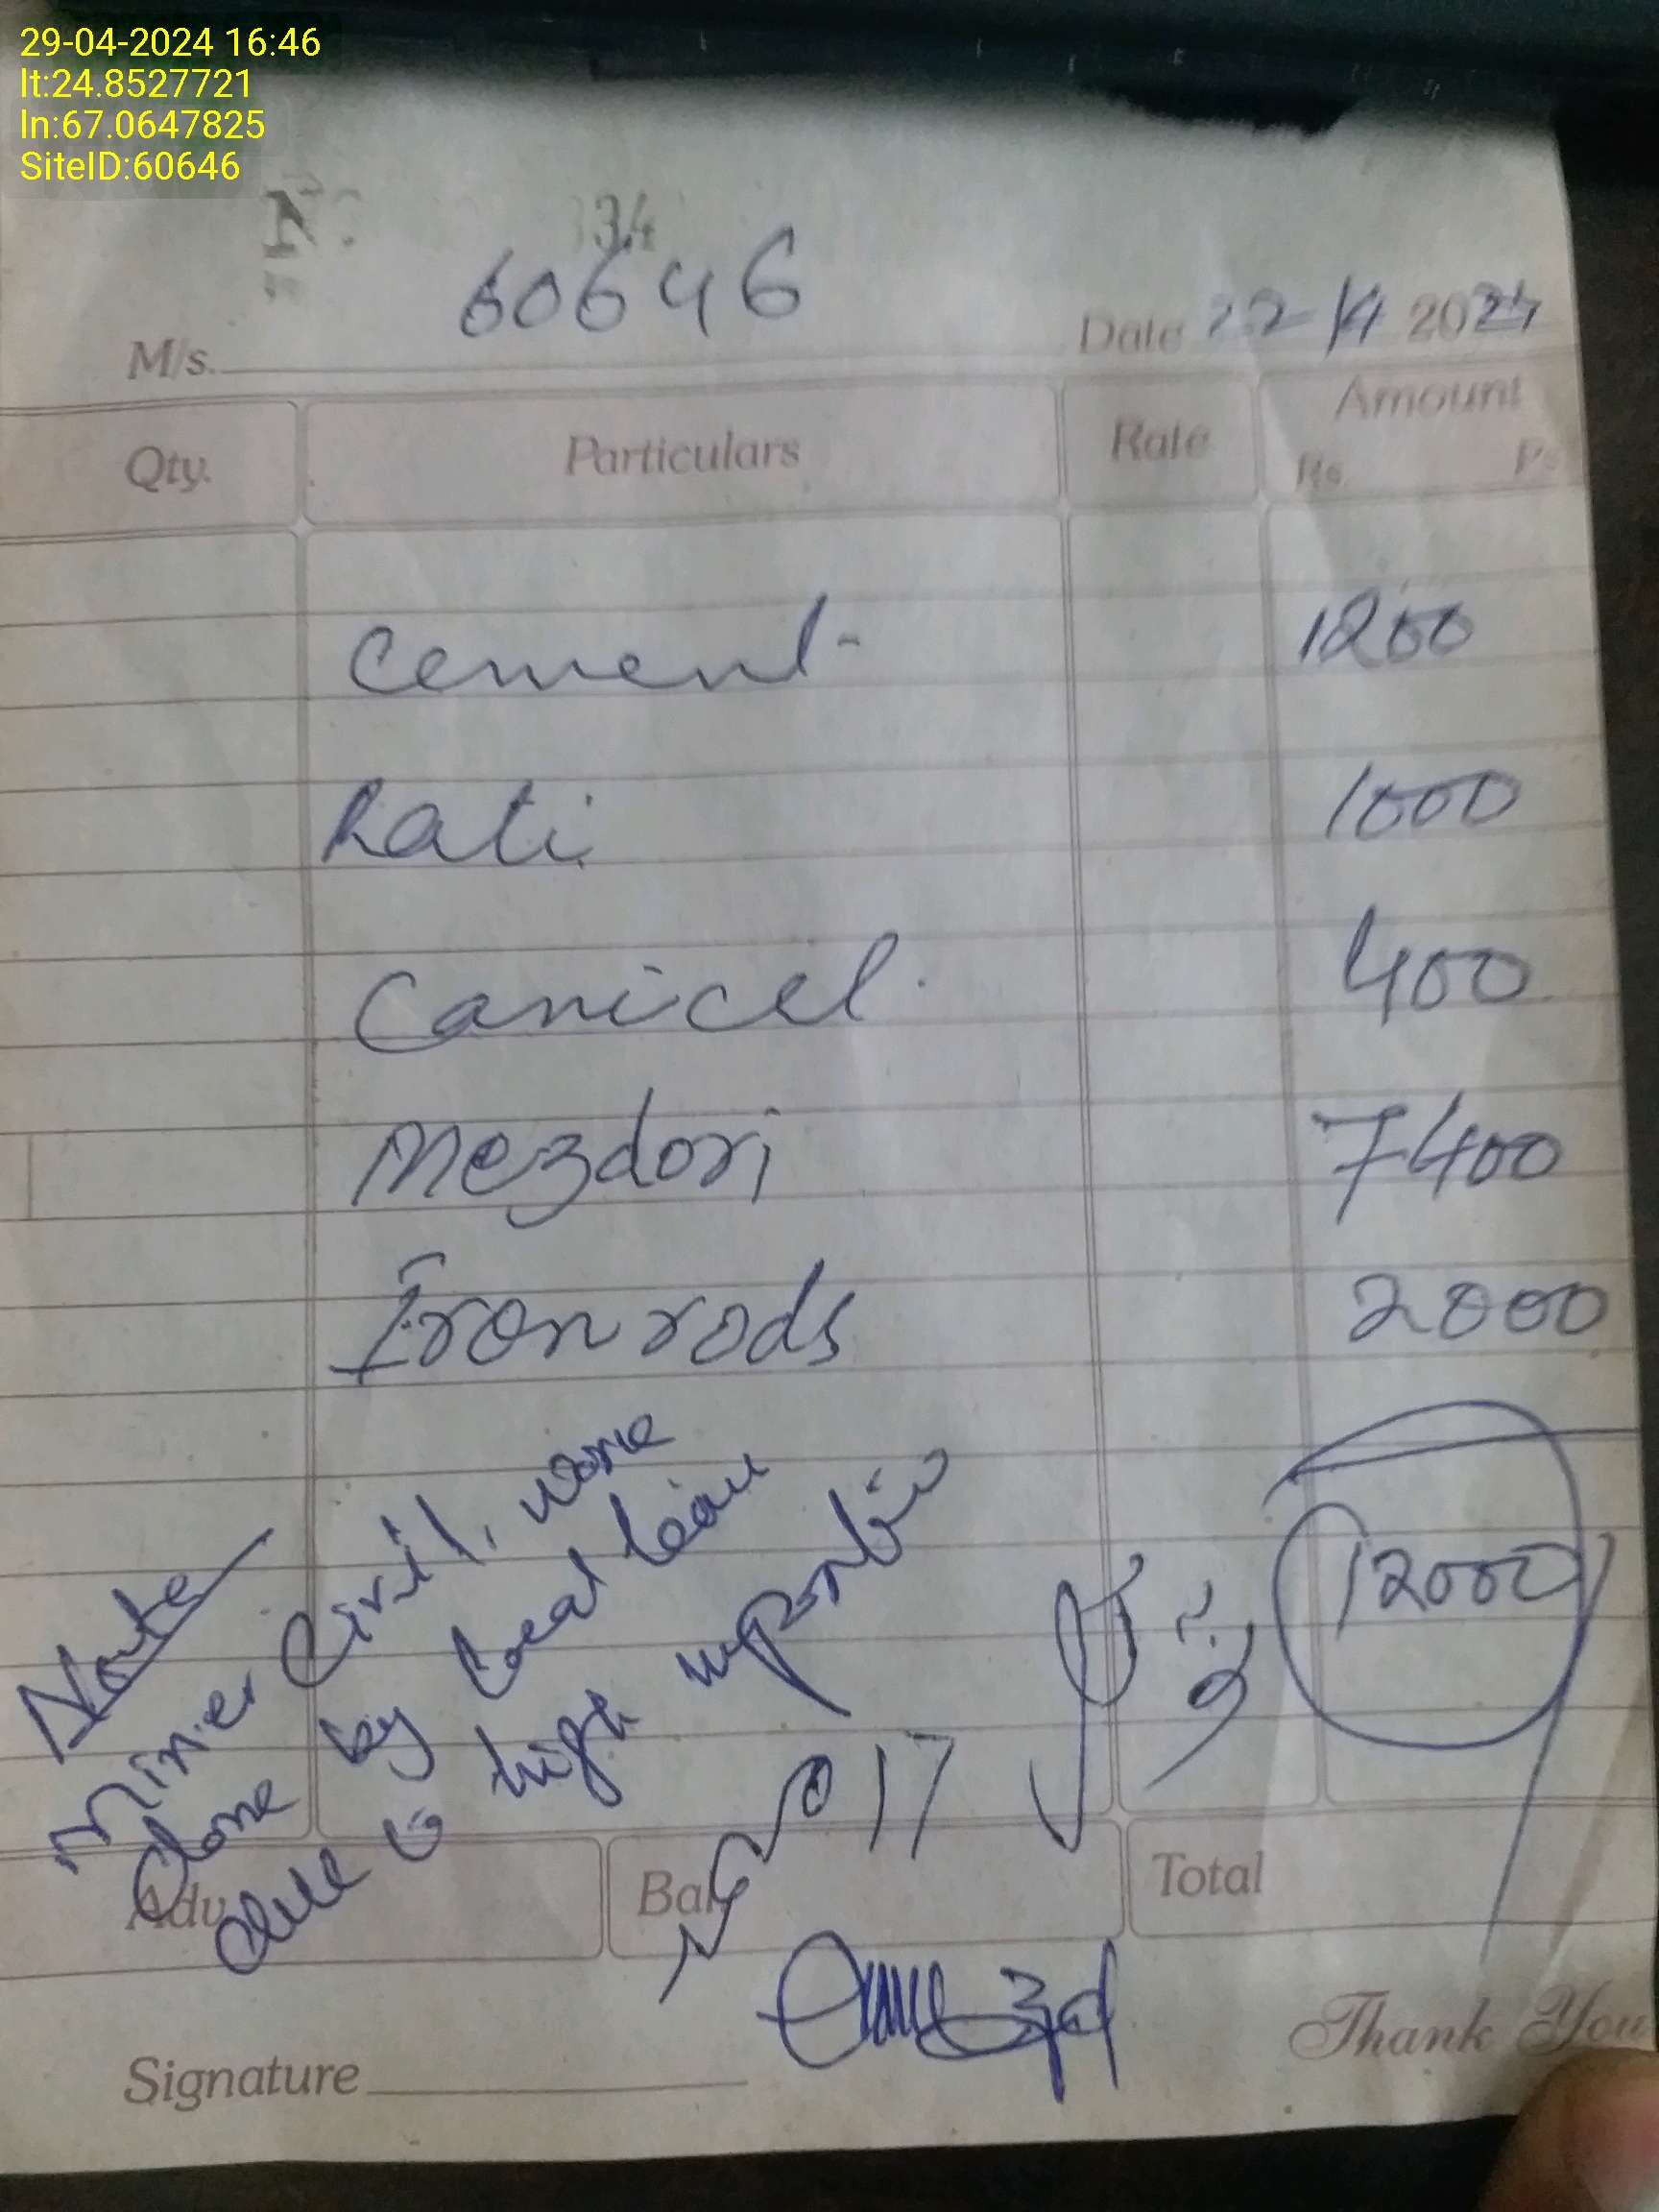 29-04-2024 16:46
lt:24.8527721
ln:67.0647825
SiteID:60646
No. 34
M/s. 60646
Date 22-/4 2024
Qty. Particulars Rate Amount
Rs. Ps
Cement- 1200
Rati 1000
Camicel. 400
Mezdori 7400
Iron rods 2000
12000
Note
Miner Civil, work
done by local team
due to high
17
Adv Bal Total
Signature
Thank You